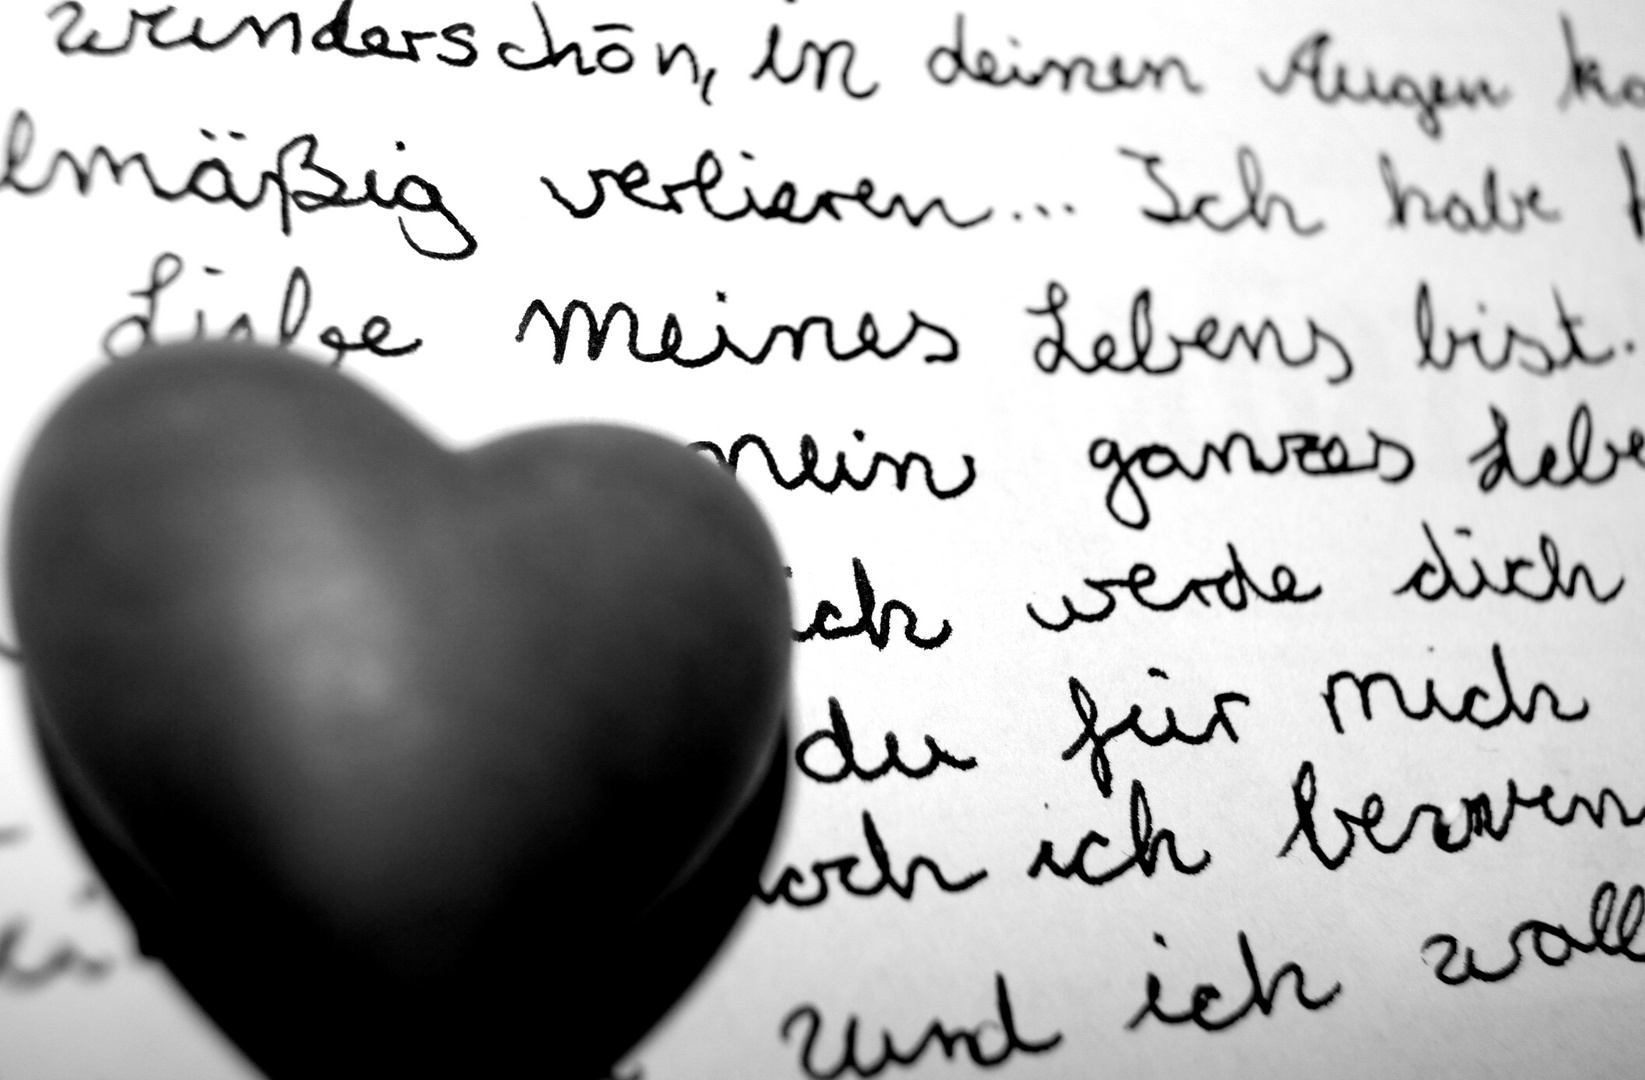 wunderschön, in deinen Augen
emäßig verlieren... Ich habe
Liebe meines Lebens bist.
mein ganzes Lebe
ich werde dich
du für mich
och ich
und ich woll